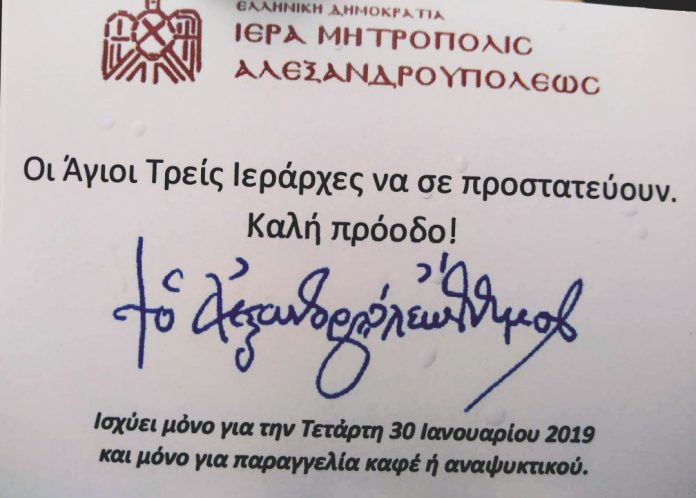 ΕΛΛΗΝΙΚΗ ΔΗΜΟΚΡΑΤΙΑ
ΙΕΡΑ ΜΗΤΡΟΠΟΛΙϹ
ΑΛΕΞΑΝΔΡΟΥΠΟΛΕωϹ
Οι Άγιοι Τρείς Ιεράρχες να σε προστατεύουν.
Καλή πρόοδο!
† ὁ Ἀλεξανδρουπόλεως Ἄνθιμος
Ισχύει μόνο για την Τετάρτη 30 Ιανουαρίου 2019
και μόνο για παραγγελία καφέ ή αναψυκτικού.